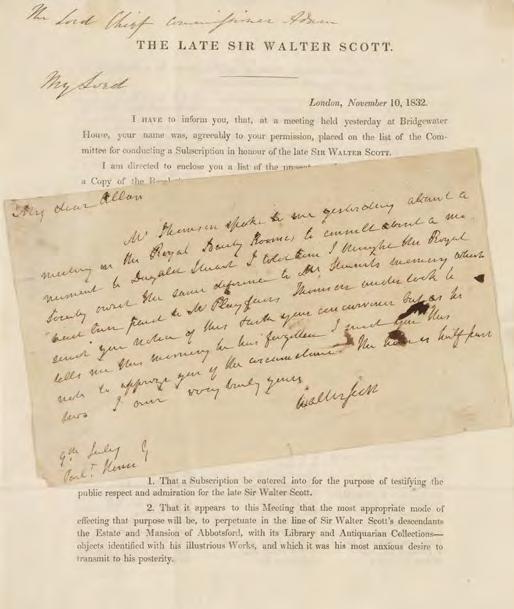 The Lord Chief Commissioner Adam
THE LATE SIR WALTER SCOTT.
My Lord
London, November 10, 1832.
I HAVE to inform you, that, at a meeting held yesterday at Bridgewater
House, your name was, agreeably to your permission, placed on the list of the Com-
mittee for conducting a Subscription in honour of the late SIR WALTER SCOTT.
I am directed to enclose you a list of the present
a Copy of the
My dear Allan
Mr Thomson spoke to me yesterday about a
meeting in the Royal Society Rooms to consult about a mo
nument to Dugald Stewart I told him I thought the Royal
Society owed the same deference to Mr Stewarts memory which
had been paid to Mr Playfairs Thomson undertook to
send you notice of this with your concurrence but as he
tells me this morning he has forgotten I send you this
note to apprize you of the circumstance. The hour is half past
two I am very truly yours
Walter Scott
9th July
Parlt House
1. That a Subscription be entered into for the purpose of testifying the
public respect and admiration for the late Sir Walter Scott.
2. That it appears to this Meeting that the most appropriate mode of
effecting that purpose will be, to perpetuate in the line of Sir Walter Scott's descendants
the Estate and Mansion of Abbotsford, with its Library and Antiquarian Collections—
objects identified with his illustrious Works, and which it was his most anxious desire to
transmit to his posterity.